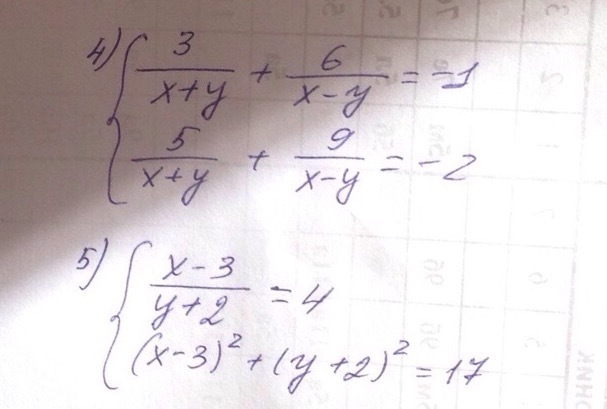 4) { 3/(x+y) + 6/(x-y) = -1
5/(x+y) + 9/(x-y) = -2
5) { (x-3)/(y+2) = 4
(x-3)² + (y+2)² = 17